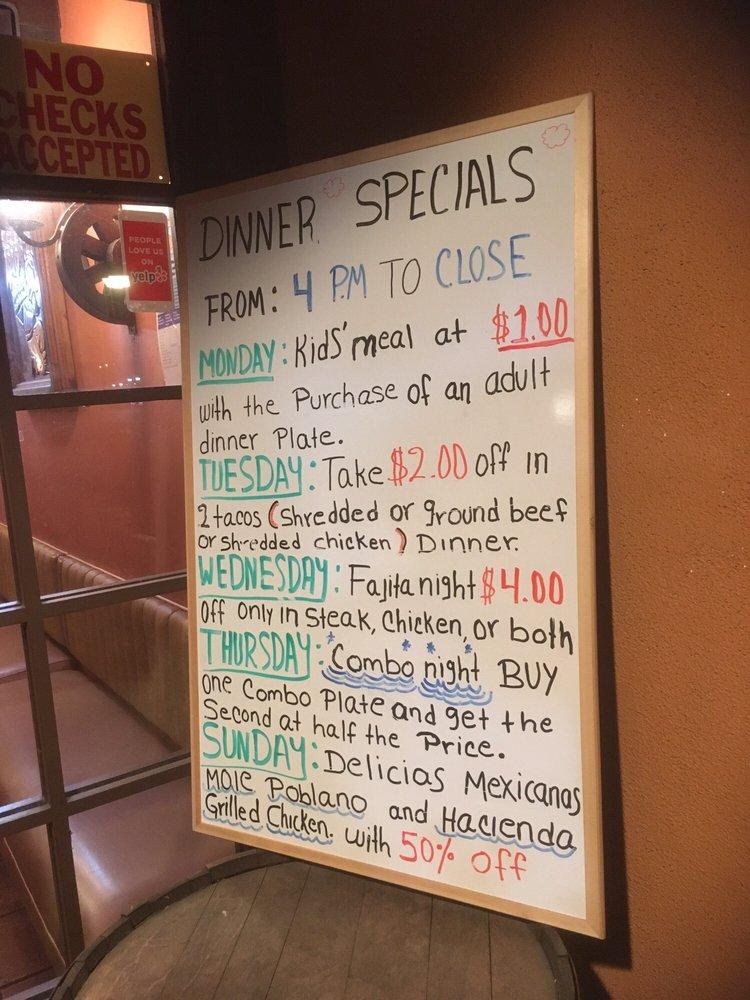 NO
CHECKS
ACCEPTED
PEOPLE
LOVE US
ON
yelp
DINNER SPECIALS
FROM: 4 P.M TO CLOSE
MONDAY: Kids' meal at $1.00
with the Purchase of an adult
dinner Plate.
TUESDAY: Take $2.00 off in
2 tacos (Shredded or ground beef
or shredded chicken) Dinner.
WEDNESDAY: Fajita night $4.00
Off only in Steak, Chicken, or both
THURSDAY: Combo night BUY
one Combo Plate and get the
Second at half the Price.
SUNDAY: Delicias Mexicanas
Mole Poblano and Hacienda
Grilled Chicken. with 50% Off